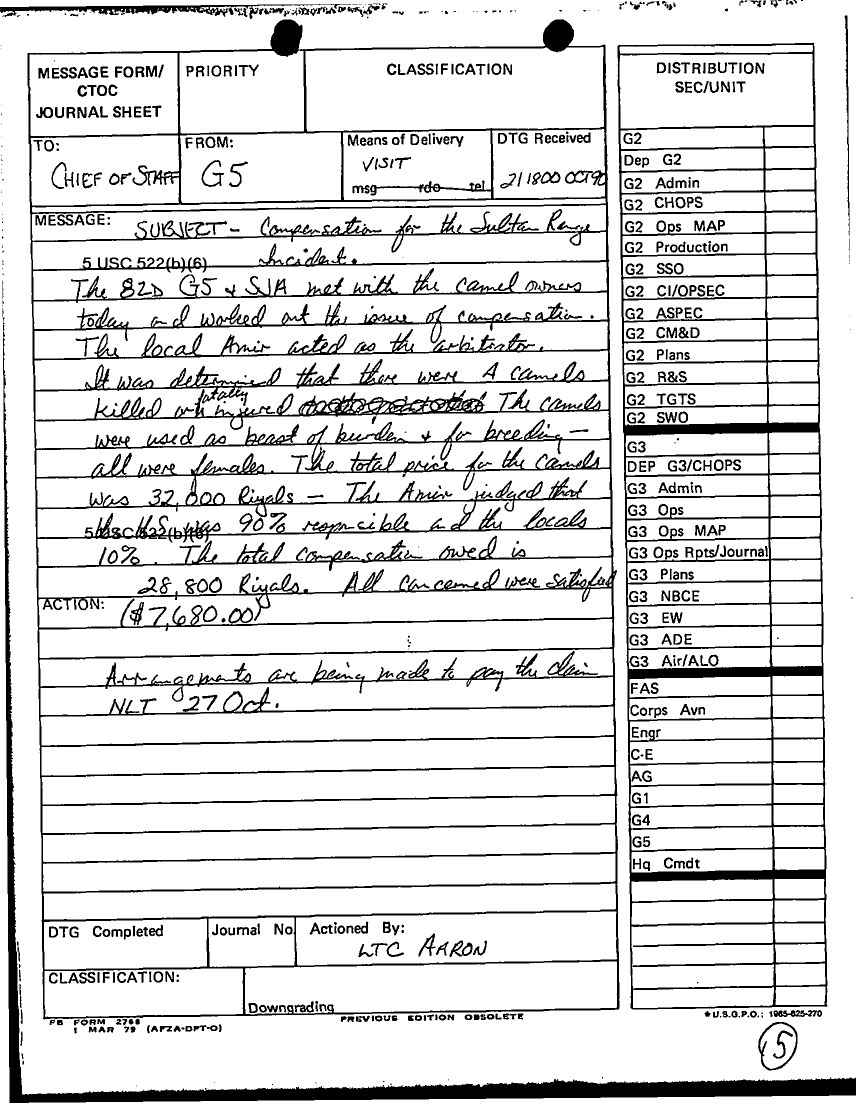 MESSAGE FORM/
CTOC
JOURNAL SHEET
PRIORITY
CLASSIFICATION
TO:
CHIEF OF STAFF
FROM:
G5
Means of Delivery
VISIT
msg rdo tel
DTG Received
211800 OCT90
MESSAGE:
SUBJECT - Compensation for the Sultan Range
5 USC 522(b)(6) Incident.
The 82D G5 & SJA met with the camel owners
today and worked out the issue of compensation.
The local Amir acted as the arbitrator.
It was determined that there were 4 camels
fatally
killed or injured The camels
were used as beast of burden & for breeding -
all were females. The total price for the camels
was 32,000 Riyals - The Amir judged that
5 USC 522(b)(6)
the US was 90% responsible and the locals
10%. The total compensation owed is
28,800 Riyals. All concerned were satisfied
ACTION:
($7,680.00)
Arrangements are being made to pay the claim
NLT 27 Oct.
DTG Completed
Journal No.
Actioned By:
LTC AARON
CLASSIFICATION:
Downgrading
FB FORM 2768
1 MAR 79 (AFZA-DPT-O)
PREVIOUS EDITION OBSOLETE
DISTRIBUTION
SEC/UNIT
G2
Dep G2
G2 Admin
G2 CHOPS
G2 Ops MAP
G2 Production
G2 SSO
G2 CI/OPSEC
G2 ASPEC
G2 CM&D
G2 Plans
G2 R&S
G2 TGTS
G2 SWO
G3
DEP G3/CHOPS
G3 Admin
G3 Ops
G3 Ops MAP
G3 Ops Rpts/Journal
G3 Plans
G3 NBCE
G3 EW
G3 ADE
G3 Air/ALO
FAS
Corps Avn
Engr
C-E
AG
G1
G4
G5
Hq Cmdt
*U.S.G.P.O.: 1985-625-270
5